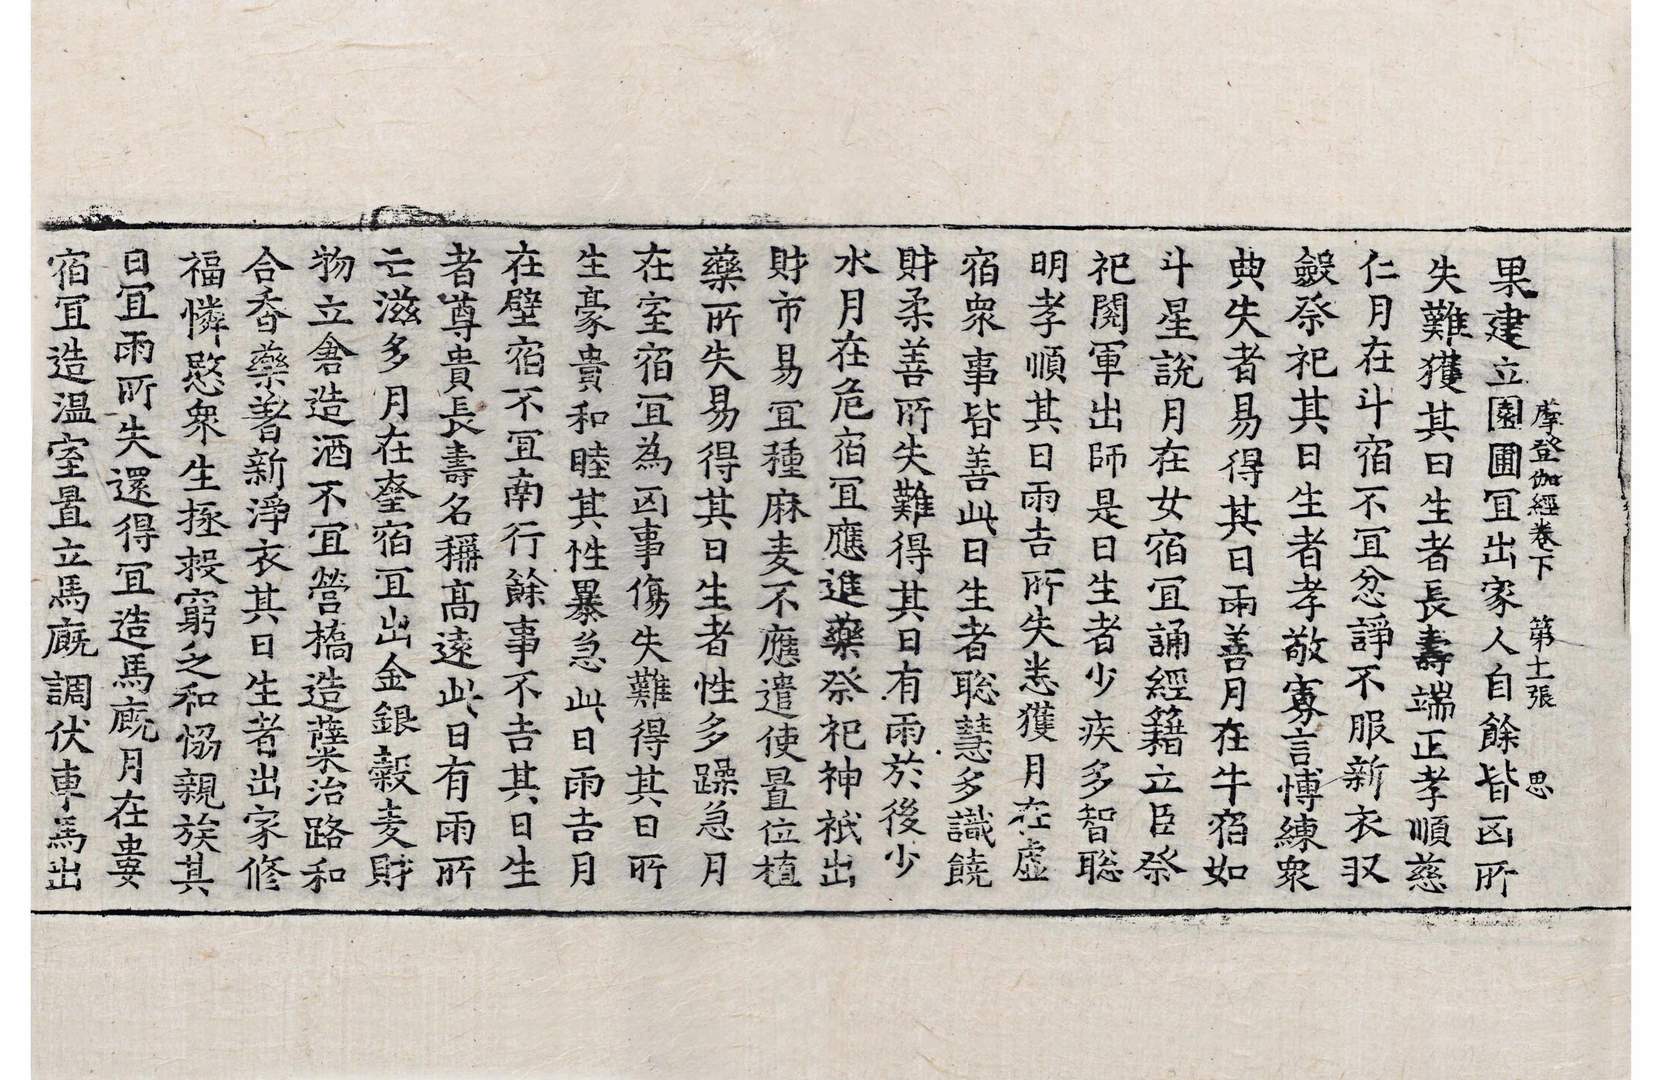 摩登伽經卷下 第十一張 思
果建立園圃冝出家人自餘皆凶所
失難獲其日生者長壽端正孝順慈
仁月在斗宿不冝忿諍不服新衣収
斂祭祀其日生者孝敬寡言博練衆
典失者易得其日雨善月在牛宿如
斗星說月在女宿冝誦經籍立臣祭
祀閱軍出師是日生者少疾多智聡
明孝順其日雨吉所失悉獲月在虛
宿衆事皆善此日生者聡慧多識饒
財柔善所失難得其日有雨於後少
水月在危宿冝應進藥祭祀神祇出
財市易冝種麻麦不應遣使置位植
藥所失易得其日生者性多躁急月
在室宿冝為凶事傷失難得其日所
生豪貴和睦其性暴急此日雨吉月
在壁宿不冝南行餘事不吉其日生
者尊貴長壽名稱高遠此日有雨所
亡滋多月在奎宿冝出金銀穀麦財
物立倉造酒不冝營橋造蘗治路和
合香藥著新淨衣其日生者出家修
福憐愍衆生拯救窮乏和恊親族其
日冝雨所失還得冝造馬廐月在婁
宿冝造溫室置立馬廐調伏車馬出